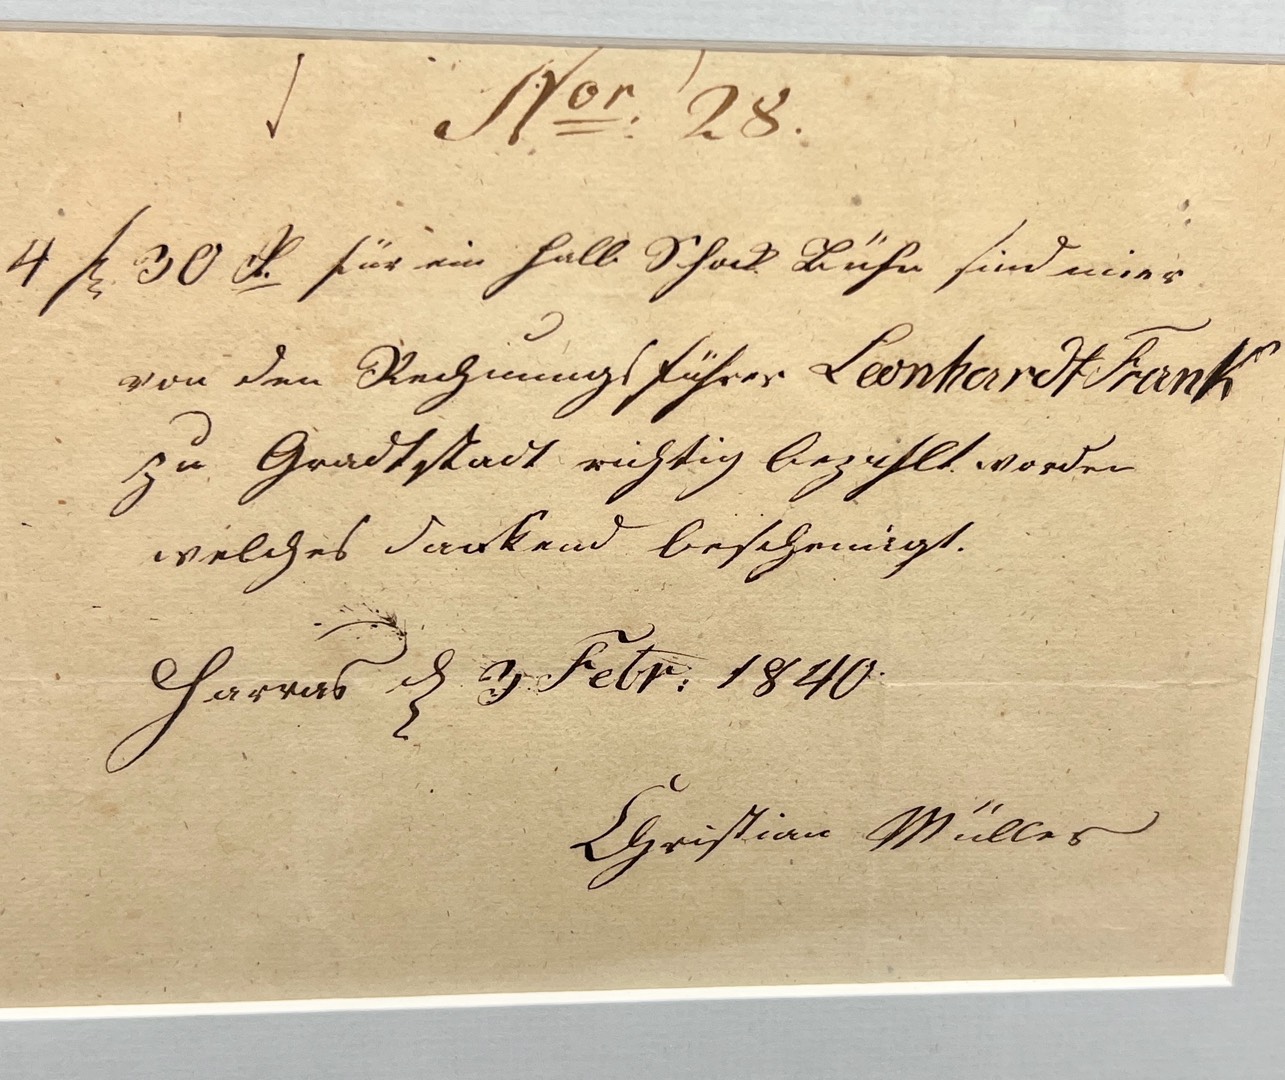 Nor: 28.
4 f 30 x. für ein halb Schock Bühn sind mier
von den Rechnungsführer Leonhardt Frank
zu Gradtstadt richtig bezahlt worden
welches dankend bescheinigt.
Harras d 3 Febr: 1840.
Christian Müller